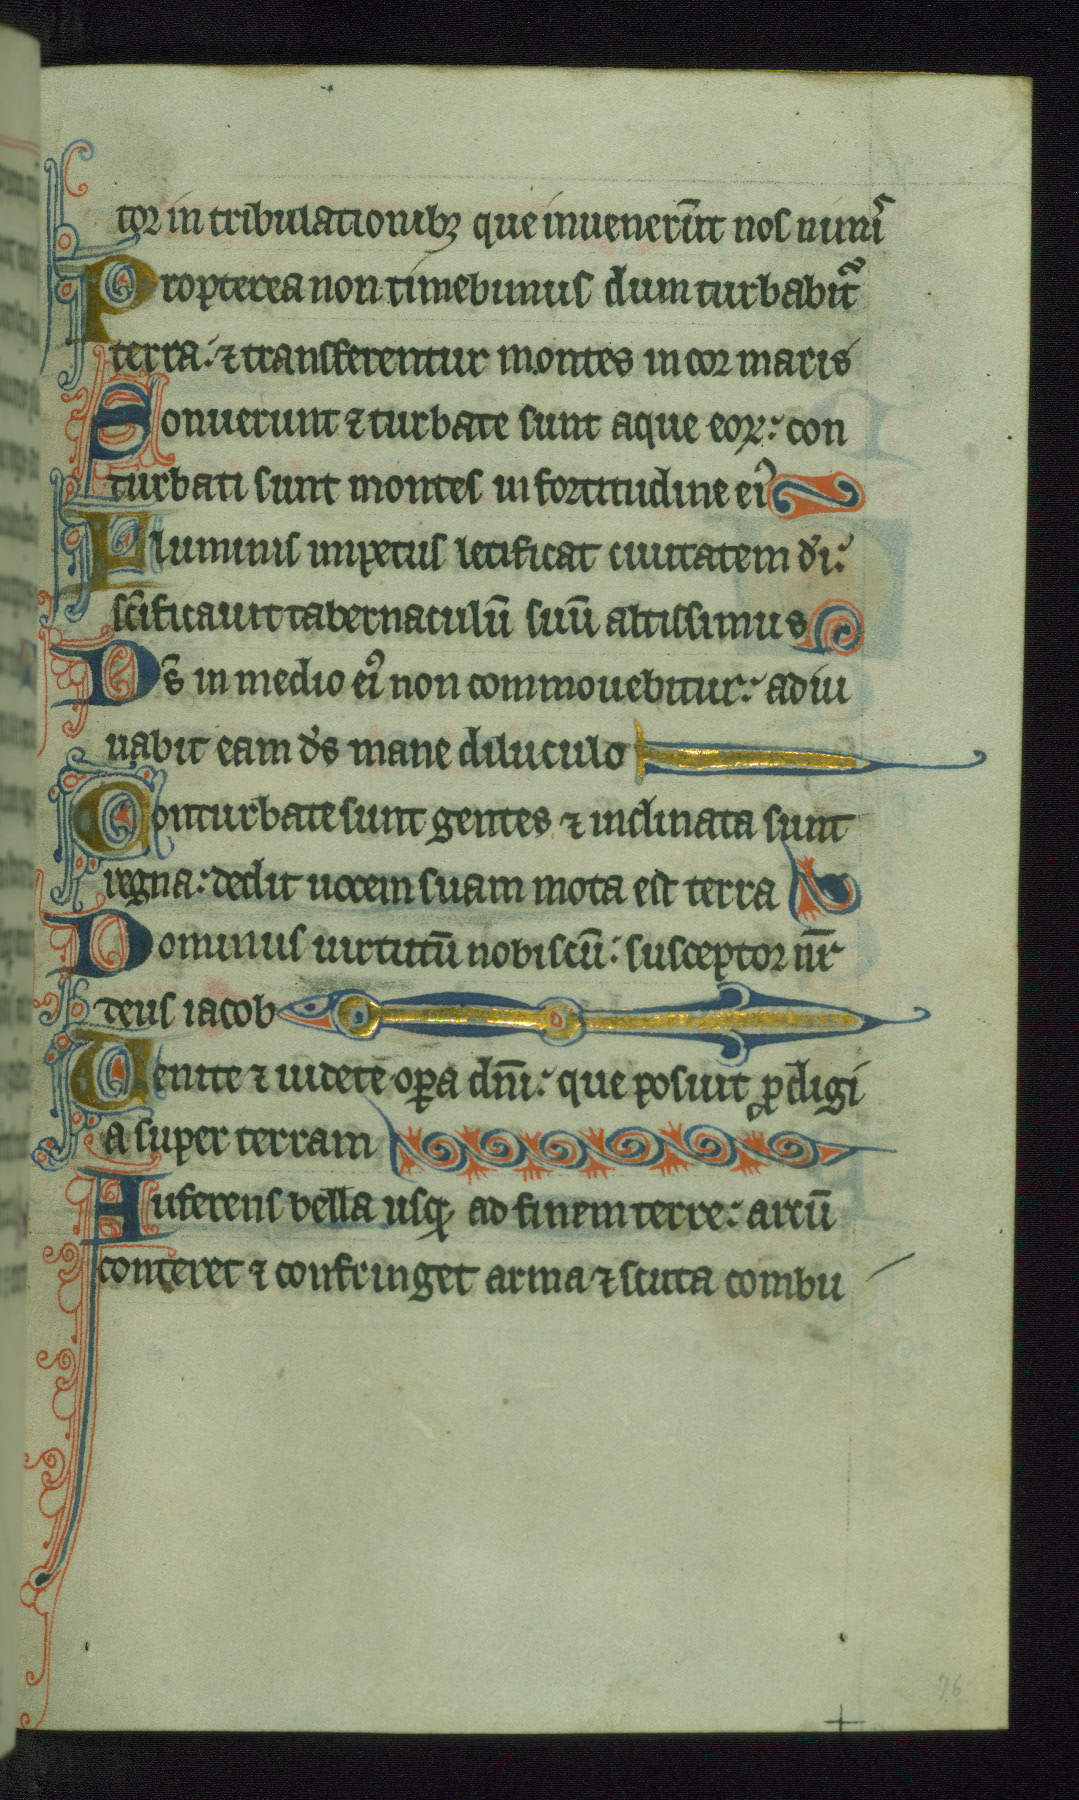 tor in tribulationibꝫ que inuenerūt nos nimiˢ
Propterea non timebimus dum turbabit᷑
terra: ⁊ transferentur montes in cor maris
Sonuerunt ⁊ turbate sunt aque eoꝝ: con
turbati sunt montes in fortitudine eiꝰ
Fluminis impetus letificat ciuitatem d̄i:
sc̄ificauit tabernaculū suū altissimus
Ds̄ in medio eiꝰ non commouebitur: adiu
uabit eam d̄s mane diluculo
Conturbate sunt gentes ⁊ inclinata sunt
regna: dedit uocem suam mota est terra
Dominus uirtutū nobiscū: susceptor nr̄
deus iacob
Uenite ⁊ uidete oꝑa dn̄i: que posuit ꝓdigi
a super terram
Auferens bella usqꝫ ad finem terre: arcū
conteret ⁊ confringet arma ⁊ scuta combu
76